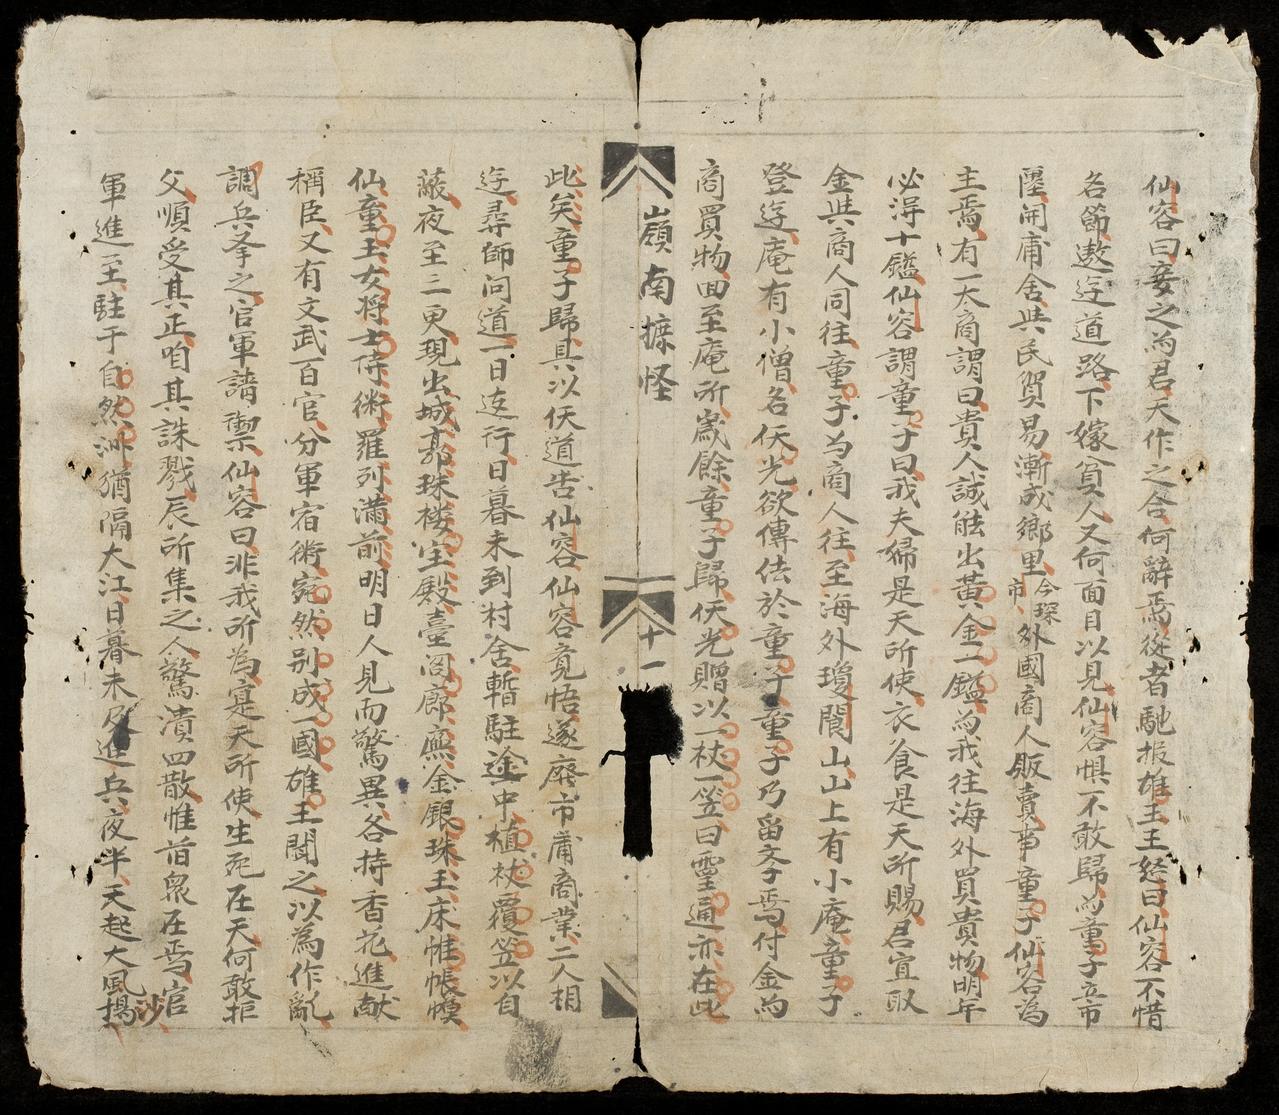 仙容曰妾之为君天作之合何辭焉從者馳报雄王王怒曰仙容不惜
名節遨逰道路下嫁貧人又何面目以見仙容惧不敢歸为童子立市
壥開庯舍共民貿易漸成鄉里今琛市外國商人販賣事童子仙容為
主焉有一大商謂曰貴人誠能出黄金一鎰为我往海外買貴物明年
必淂十鎰仙容謂童子曰我夫婦是天所使衣食是天所賜君宜取
金共商人同往童子为商人往至海外瓊閬山山上有小庵童子
登逰庵有小僧名仸光欲傳法於童子童子乃畱斈焉付金为
商買物回至庵所歲餘童子歸仸光贈以一杖一笠曰霊通亦在此
嶺南摭怪
十一
此矣童子歸具以仸道告仙容仙容覔悟遂廢市庯商業二人相
逰尋師问道一日逺行日暮未到村舍暫駐途中植杖覆笠以自
蔽夜至三更現出城郭珠楼宝殿臺阁廊廡金銀珠玉床帷帳幔
仙童玉女将士侍衛羅列滿前明日人見而驚異各持香花進献
稱臣又有文武百官分軍宿衛宛然别成一國雄王聞之以為作亂
調兵拏之官軍請禦仙容曰非我所為寔天所使生死在天何敢拒
父順受其正咱其誅戮辰所集之人驚潰四散惟舊衆在焉官
軍進至駐于自然洲猶隔大江日暮未及進兵夜半天起大風揚沙